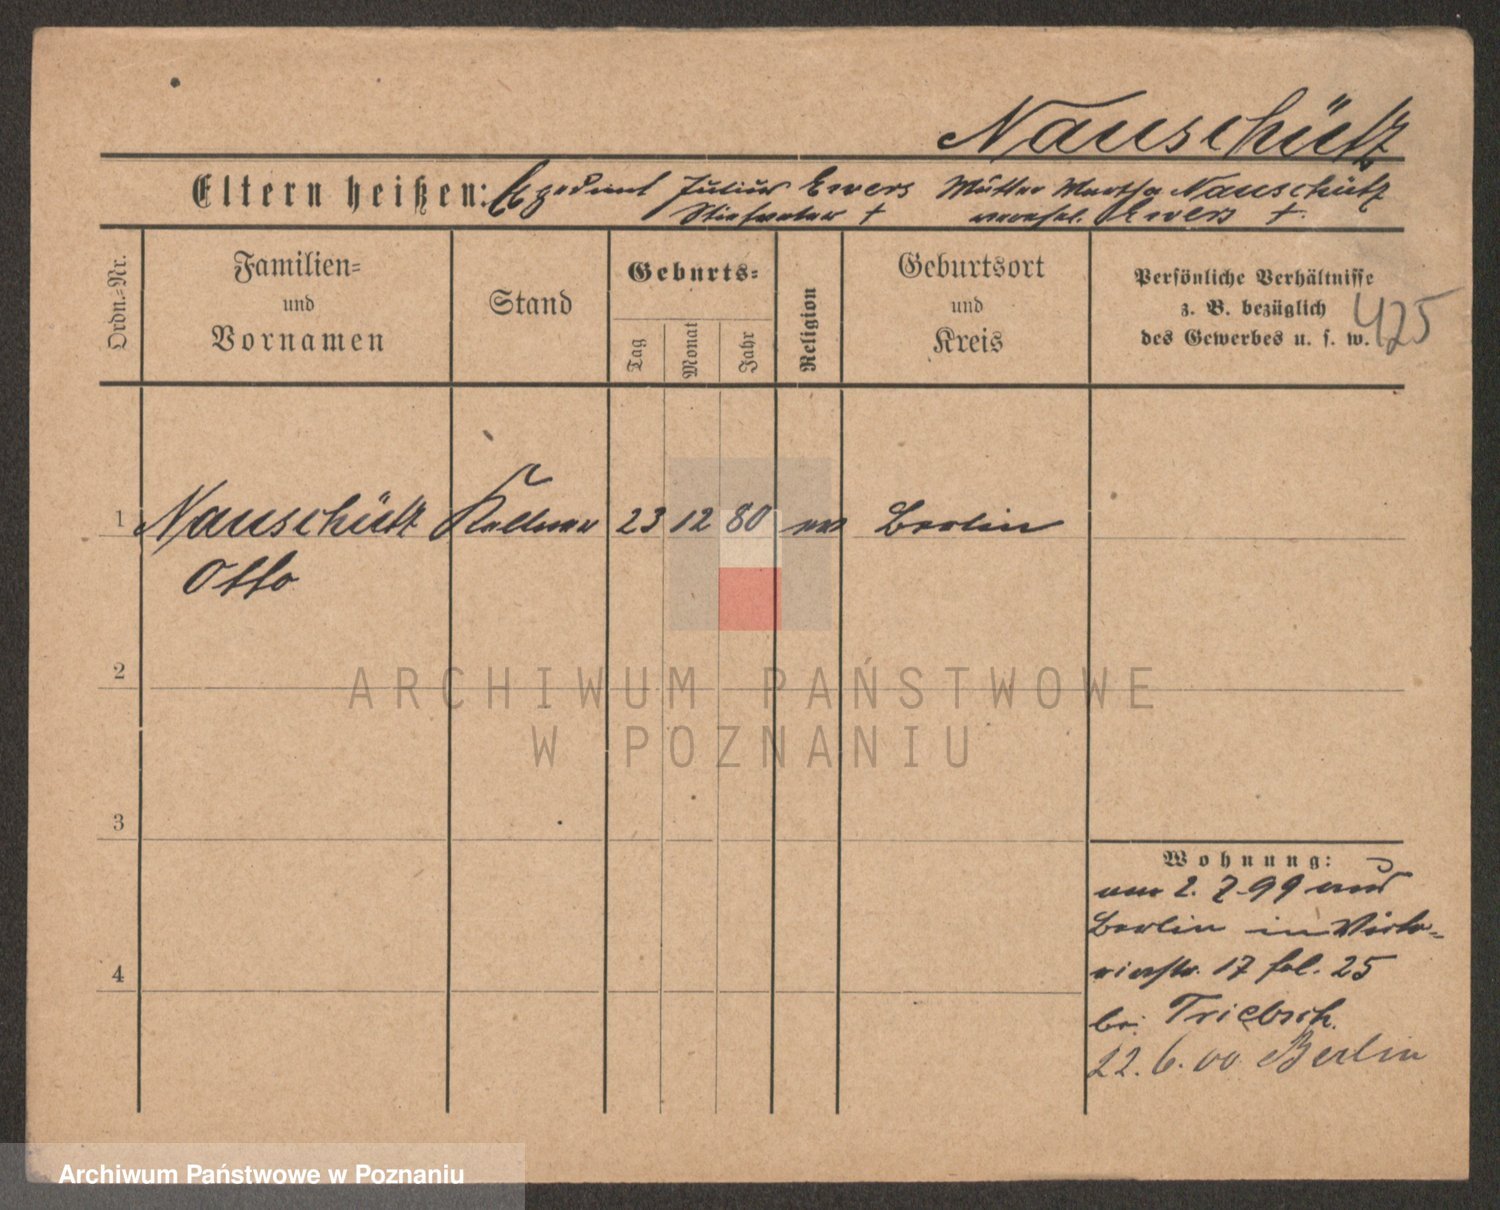 Nauschütz
Eltern heißen: Expedient Julius Ewers Mutter Martha Nauschütz
Stiefvater † verehel. Ewers †
Ordn.-Nr.
Familien-
und
Vornamen
Stand
Geburts-
Tag
Monat
Jahr
Religion
Geburtsort
und
Kreis
Persönliche Verhältnisse
z. B. bezüglich
des Gewerbes u. s. w.
425
1 Nauschütz Kellner 23 12 80 ev Berlin
Otto
2
3
4
Wohnung:
am 2. 7. 99 aus
Berlin in Victo-
riastr. 17 fol. 25
bei Triebsch.
22. 6. 00 Berlin
ARCHIWUM PAŃSTWOWE
W POZNANIU
Archiwum Państwowe w Poznaniu